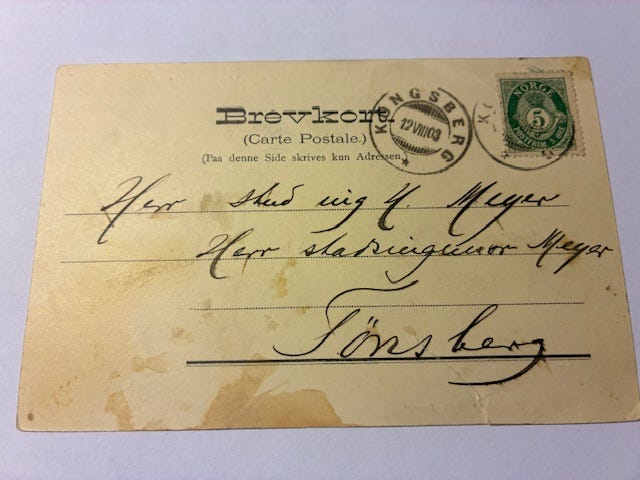 Brevkort.
(Carte Postale.)
(Paa denne Side skrives kun Adressen.)
KONGSBERG
12 VIII 03
NORGE
5
POSTFRIM 5 ØRE
Herr stud ing H. Meyer
Herr stadsingeniør Meyer
Tönsberg